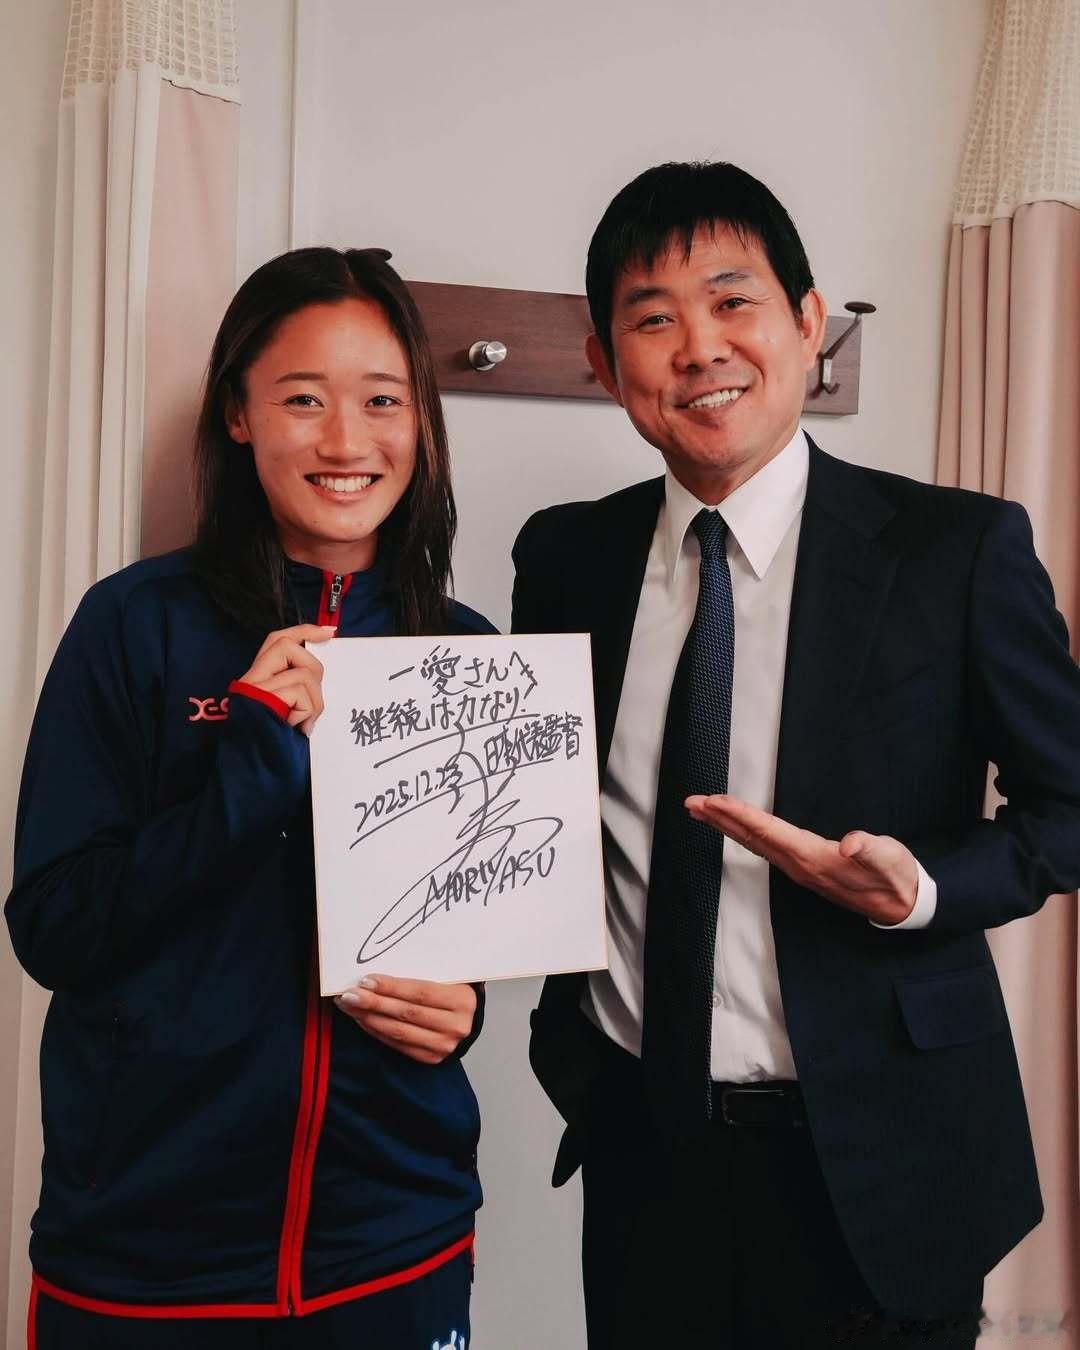 一愛さんへ
継続は力なり!
日本代表監督
2025.12.23
MORIYASU